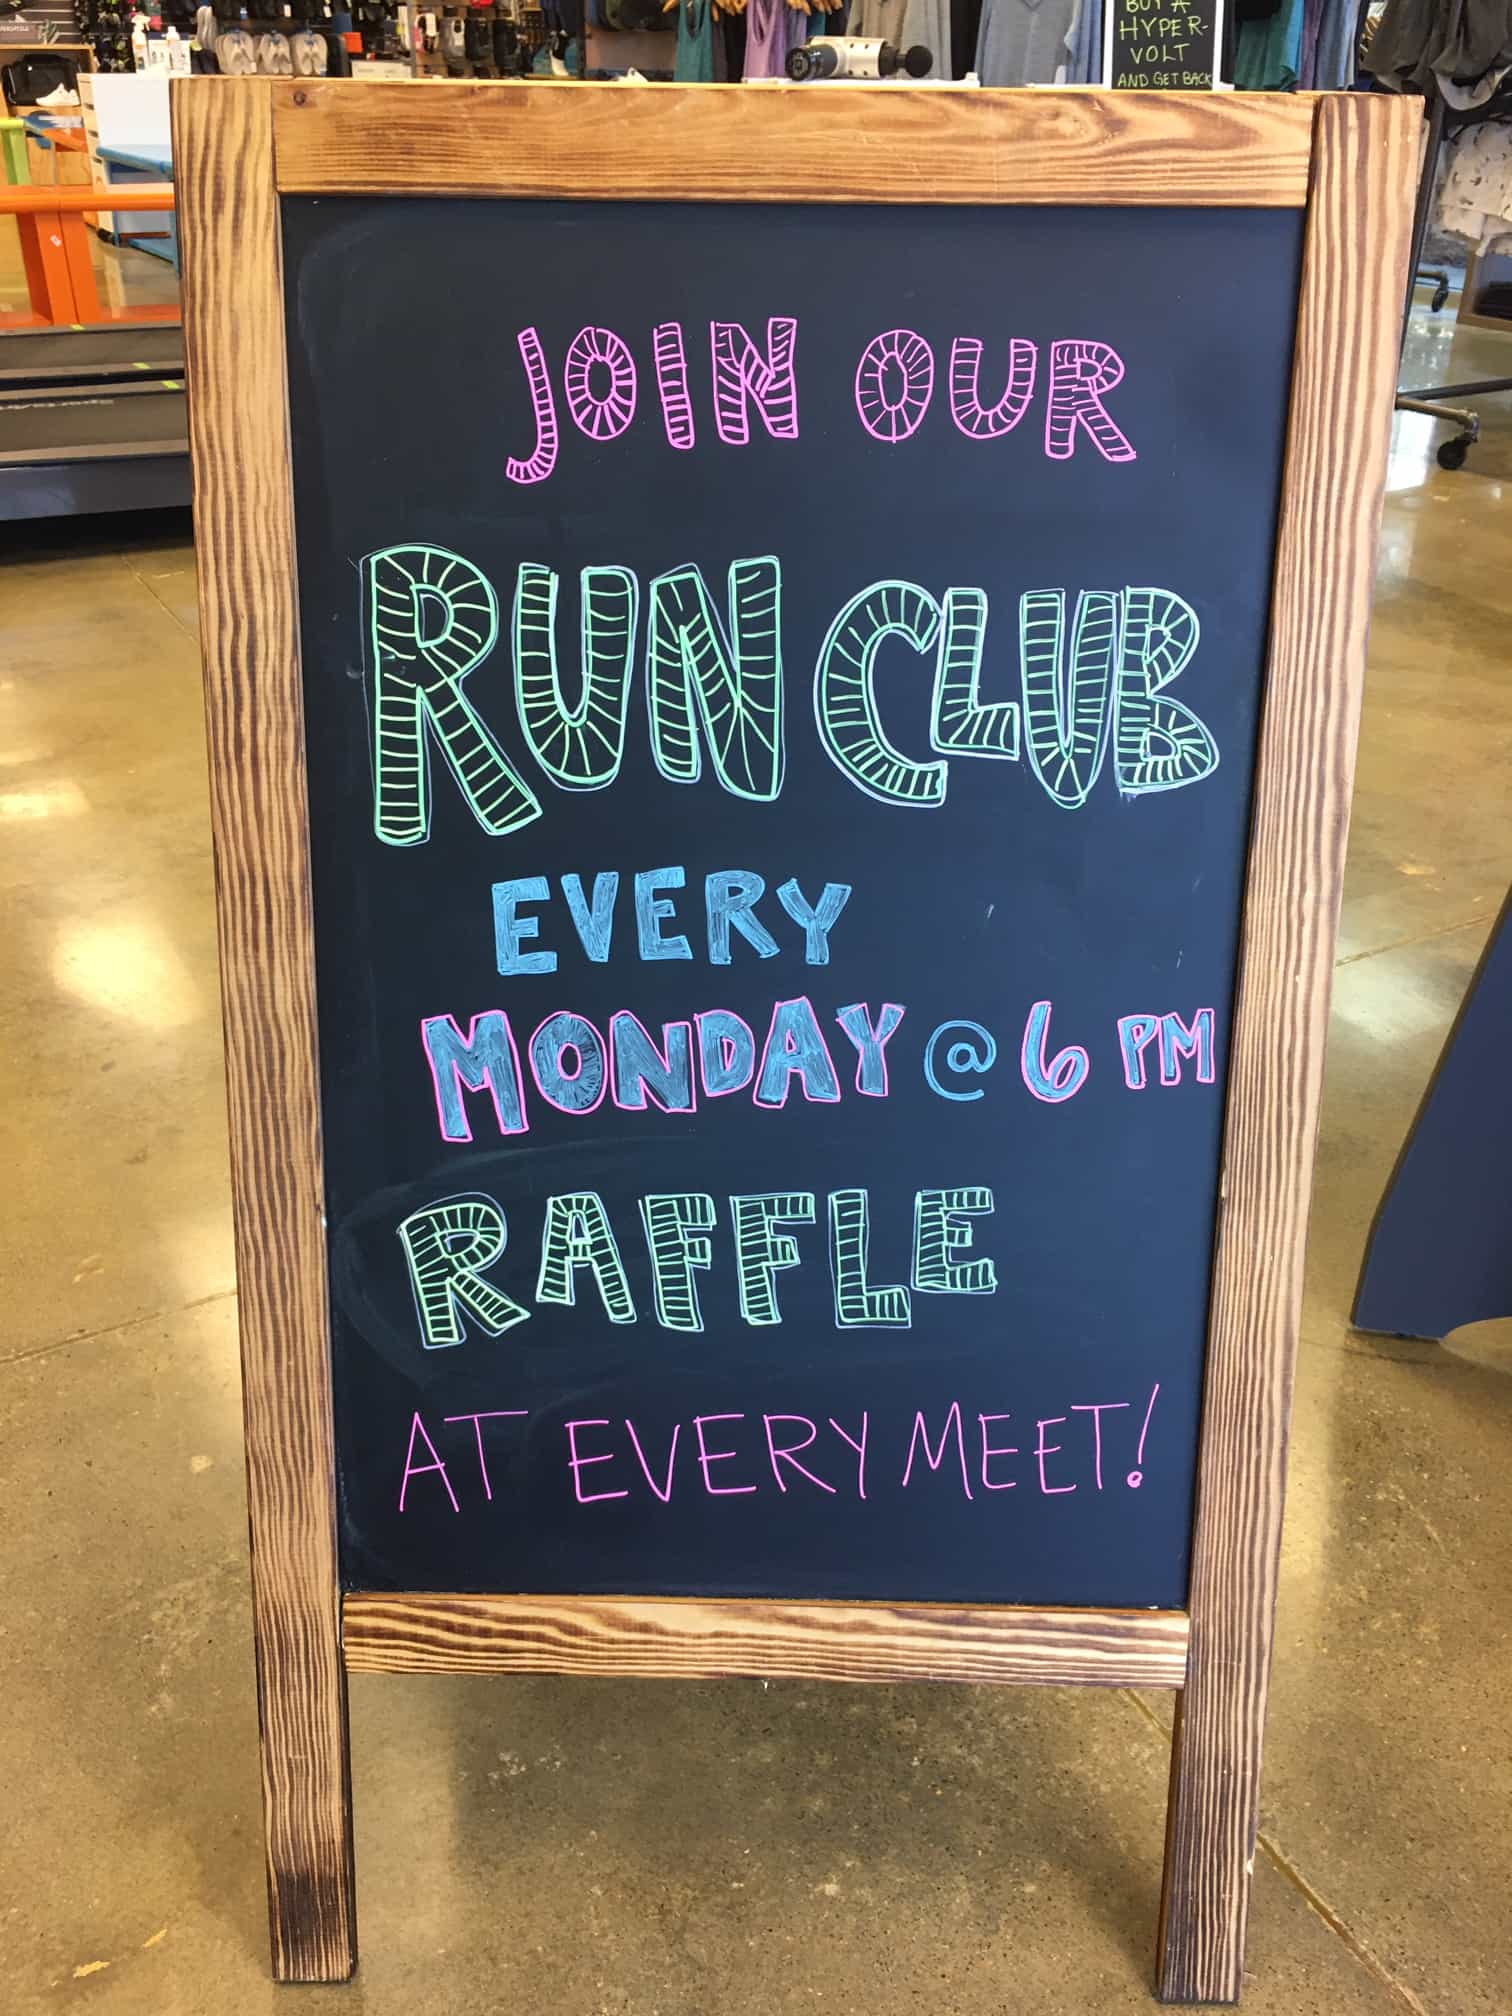 BUY A
HYPER-
VOLT
AND GET BACK
JOIN OUR
RUN CLUB
EVERY
MONDAY @ 6 PM
RAFFLE
AT EVERY MEET!